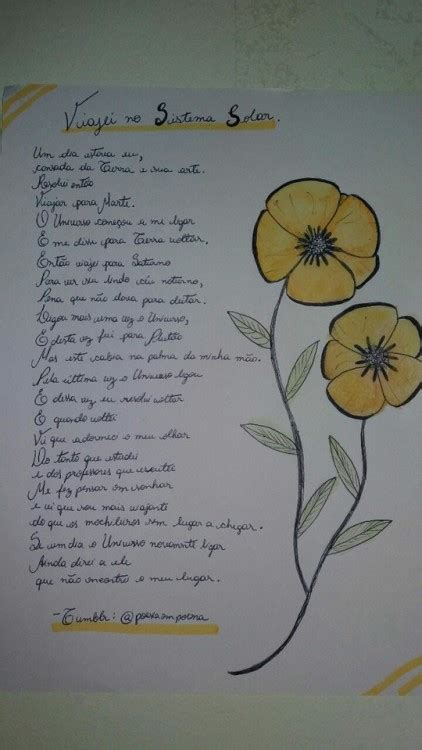 Viajei no Sistema Solar.
Um dia estava eu,
cansada da Terra e sua arte.
Resolvi então
Viajar para Marte.
O Universo começou a me ligar
E me disse para Terra voltar.
Então viajei para Saturno
Para ver seu lindo céu noturno,
Pena que não dava para deitar.
Ligou mais uma vez o Universo,
E desta vez fui para Plutão
Mas este cabia na palma da minha mão.
Pela última vez o Universo ligou
E dessa vez eu resolvi voltar
E quando voltei
Vi que adormeci o meu olhar
Do tanto que estudei
e dos professores que escutei
Me fez pensar em sonhar
e vi que sou mais viajante
do que os mochileiros sem lugar a chegar.
Se um dia o Universo novamente ligar
Ainda direi a ele
que não encontro o meu lugar.
- Tumblr: @poesiaempoema